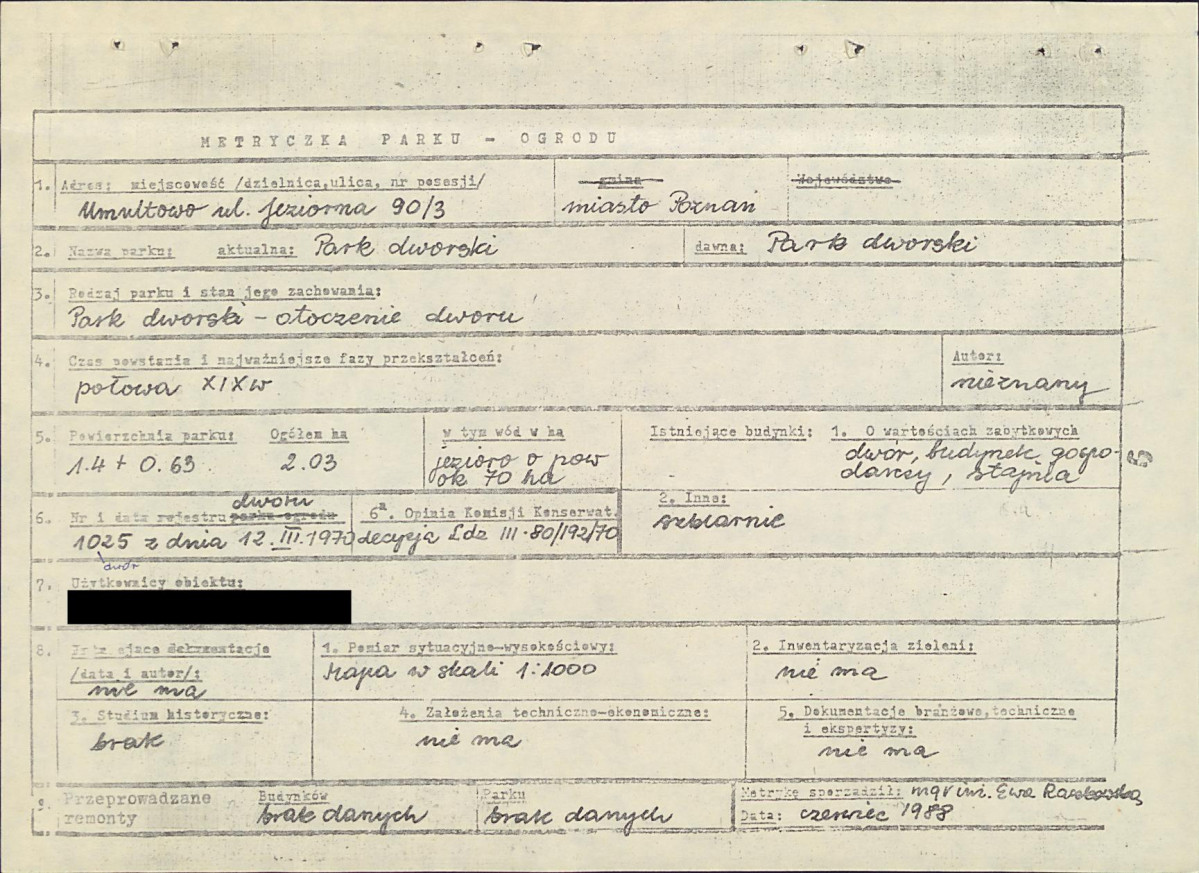 METRYCZKA PARKU - OGRODU
1. Adres: miejscowość /dzielnica,ulica, nr posesji/ gmina Województwo
Umultowo ul. Jeziorna 90/3 miasto Poznań
2. Nazwa parku: aktualna: Park dworski dawna: Park dworski
3. Rodzaj parku i stan jego zachowania:
Park dworski - otoczenie dworu
4. Czas powstania i najważniejsze fazy przekształceń: Autor:
połowa XIX w nieznany
5. Powierzchnia parku: Ogółem ha w tym wód w ha Istniejące budynki: 1. O wartościach zabytkowych
1.4 + 0.63 2.03 jezioro o pow dwór, budynek gospo-
ok 70 ha darczy, stajnia
5
dworu 2. Inne:
6. Nr i data rejestru parku-ogrodu 6a. Opinia Komisji Konserwat. szklarnie
1025 z dnia 12.III.1970 decyzja Ldz III-80/192/70
dwór
7. Użytkownicy obiektu:
8. Istniejące dokumentacje 1. Pomiar sytuacyjno-wysokościowy: 2. Inwentaryzacja zieleni:
/data i autor/: Mapa w skali 1:1000 nie ma
nie ma
3. Studium historyczne: 4. Założenia techniczno-ekonomiczne: 5. Dokumentacje branżowe,techniczne
i ekspertyzy:
brak nie ma nie ma
9. Przeprowadzane Budynków Parku Metrykę sporządził: mgr inż. Ewa
remonty brak danych brak danych Data: czerwiec 1988